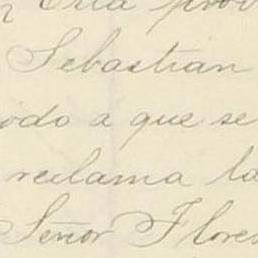 Sebastian
odo a que se
reclama la
Señor Flores